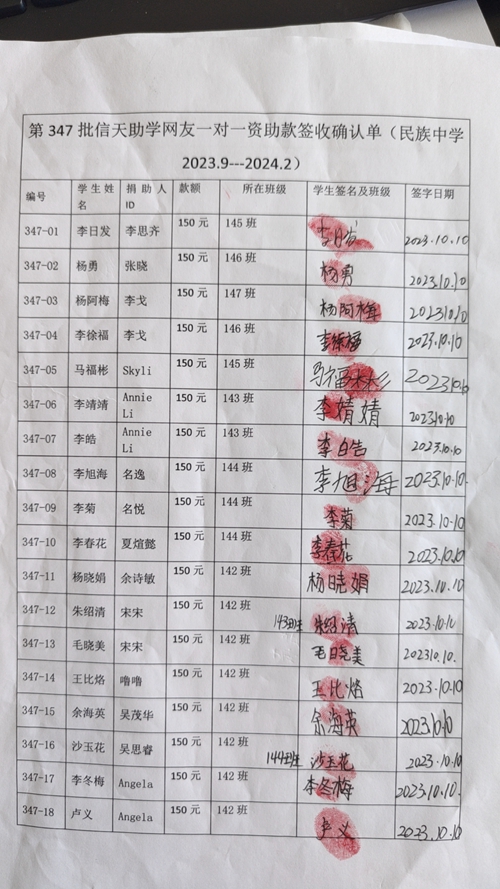 第 347 批信天助学网友一对一资助款签收确认单（民族中学
2023.9---2024.2）
编号 学生姓名 捐助人ID 款额 所在班级 学生签名及班级 签字日期
347-01 李日发 李思齐 150 元 145 班 李日发 2023.10.10
347-02 杨勇 张晓 150 元 146 班 杨勇 2023.10.10
347-03 杨阿梅 李戈 150 元 147 班 杨阿梅 2023.10.10
347-04 李徐福 李戈 150 元 146 班 李徐福 2023.10.10
347-05 马福彬 Skyli 150 元 145 班 马福彬 2023.10.10
347-06 李靖靖 Annie Li 150 元 143 班 李婧婧 2023.10.10
347-07 李皓 Annie Li 150 元 143 班 李皓 2023.10.10
347-08 李旭海 名逸 150 元 144 班 李旭海 2023.10.10
347-09 李菊 名悦 150 元 144 班 李菊 2023.10.10
347-10 李春花 夏煊懿 150 元 144 班 李春花 2023.10.10
347-11 杨晓娟 余诗敏 150 元 142 班 杨晓娟 2023.10.10
347-12 朱绍清 宋宋 150 元 142 班 143班 朱绍清 2023.10.10
347-13 毛晓美 宋宋 150 元 142 班 毛晓美 2023.10.10.
347-14 王比烙 噜噜 150 元 142 班 王比烙 2023.10.10
347-15 余海英 吴茂华 150 元 142 班 余海英 2023.10.10
347-16 沙玉花 吴思睿 150 元 142 班 144班 沙玉花 2023.10.10
347-17 李冬梅 Angela 150 元 142 班 李冬梅 2023.10.10.
347-18 卢义 Angela 150 元 142 班 卢义 2023.10.10